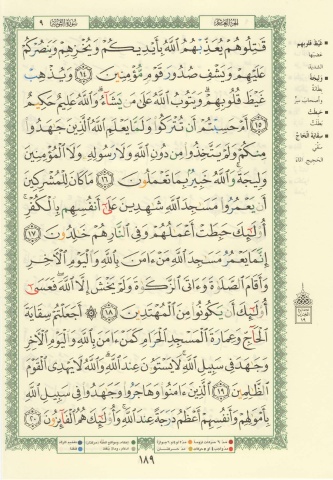 سُورَةُ التَّوْبَةِ ٩
الجزء العاشر
قَٰتِلُوهُمْ يُعَذِّبْهُمُ ٱللَّهُ بِأَيْدِيكُمْ وَيُخْزِهِمْ وَيَنصُرْكُمْ
عَلَيْهِمْ وَيَشْفِ صُدُورَ قَوْمٍ مُّؤْمِنِينَ ١٤ وَيُذْهِبْ
غَيْظَ قُلُوبِهِمْ وَيَتُوبُ ٱللَّهُ عَلَىٰ مَن يَشَآءُ وَٱللَّهُ عَلِيمٌ حَكِيمٌ
١٥ أَمْ حَسِبْتُمْ أَن تُتْرَكُوا۟ وَلَمَّا يَعْلَمِ ٱللَّهُ ٱلَّذِينَ جَٰهَدُوا۟
مِنكُمْ وَلَمْ يَتَّخِذُوا۟ مِن دُونِ ٱللَّهِ وَلَا رَسُولِهِۦ وَلَا ٱلْمُؤْمِنِينَ
وَلِيجَةً وَٱللَّهُ خَبِيرٌۢ بِمَا تَعْمَلُونَ ١٦ مَا كَانَ لِلْمُشْرِكِينَ
أَن يَعْمُرُوا۟ مَسَٰجِدَ ٱللَّهِ شَٰهِدِينَ عَلَىٰٓ أَنفُسِهِم بِٱلْكُفْرِ
أُو۟لَٰٓئِكَ حَبِطَتْ أَعْمَٰلُهُمْ وَفِى ٱلنَّارِ هُمْ خَٰلِدُونَ ١٧
إِنَّمَا يَعْمُرُ مَسَٰجِدَ ٱللَّهِ مَنْ ءَامَنَ بِٱللَّهِ وَٱلْيَوْمِ ٱلْءَاخِرِ
وَأَقَامَ ٱلصَّلَوٰةَ وَءَاتَى ٱلزَّكَوٰةَ وَلَمْ يَخْشَ إِلَّا ٱللَّهَ فَعَسَىٰٓ
أُو۟لَٰٓئِكَ أَن يَكُونُوا۟ مِنَ ٱلْمُهْتَدِينَ ١٨ أَجَعَلْتُمْ سِقَايَةَ
ٱلْحَآجِّ وَعِمَارَةَ ٱلْمَسْجِدِ ٱلْحَرَامِ كَمَنْ ءَامَنَ بِٱللَّهِ وَٱلْيَوْمِ ٱلْءَاخِرِ
وَجَٰهَدَ فِى سَبِيلِ ٱللَّهِ لَا يَسْتَوُۥنَ عِندَ ٱللَّهِ وَٱللَّهُ لَا يَهْدِى ٱلْقَوْمَ
ٱلظَّٰلِمِينَ ١٩ ٱلَّذِينَ ءَامَنُوا۟ وَهَاجَرُوا۟ وَجَٰهَدُوا۟ فِى سَبِيلِ ٱللَّهِ
بِأَمْوَٰلِهِمْ وَأَنفُسِهِمْ أَعْظَمُ دَرَجَةً عِندَ ٱللَّهِ وَأُو۟لَٰٓئِكَ هُمُ ٱلْفَآئِزُونَ ٢٠
غَيْظَ قُلُوبِهِم
وَلِيجَةً
حَبِطَتْ
سِقَايَةَ الْحَاجِّ
١٨٩